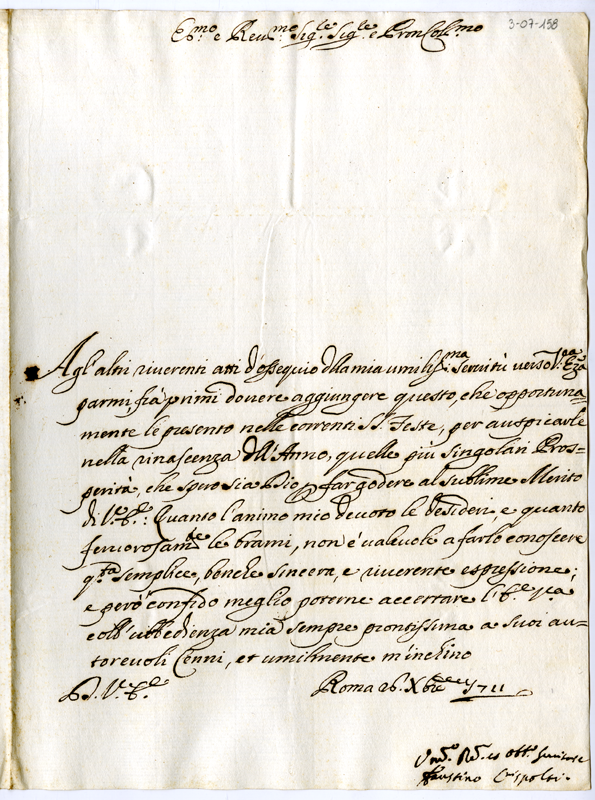 3-07-158
E.mo e Reu.mo Sig.re Sig.re e Pron Coll.mo
Agl'altri riuerenti atti d'ossequio della mia umiliss.ma Seruitù verso V.ra Em.za
parmi, frà primi douere aggiungere questo, che opportuna=
mente le presento nelle correnti S.S. Feste, per auspicarle
nella rinascenza dell'Anno, quelle più singolari Pros=
perità, che spero sia Iddio p far godere al sublime Merito
di V.E.: Quanto l'animo mio deuoto le desideri, e quanto
feruorosam.te le brami, non è valeuole a farlo conoscere
q.ta semplice, benche sincera, e riuerente espressione;
e però confido meglio poterne accertare l'E.
coll'ubbedienza mia sempre prontissima a suoi au-
toreuoli Cenni, et umilmente m'inchino
D. V. E.
Roma 26. Xbre 1711
Um.o Re. et Obb. Seruitore
Faustino Crispolti.